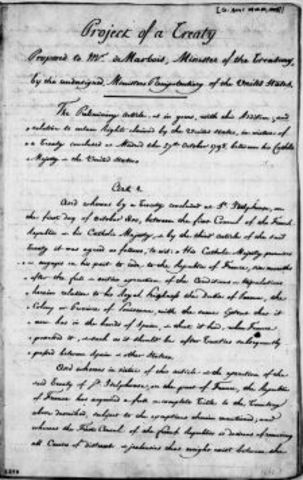 Project of a Treaty
Proposed to Mr. de Marbois, Minister of the Treasury,
by the undersigned Ministers Plenipotentiary of the United States.
The Preliminary article as in yours, with this Addition, and
relation to certain Rights claimed by the United States, in virtue of
a Treaty concluded at Madrid the 27th October 1795, between his Catholic
Majesty & the United States
And whereas by a Treaty concluded at St. Ildephonso, on
the first day of October 1800, between the first Consul of the French
Republic & his Catholic Majesty, & by the third article of the said
Treaty it was agreed as follows, to wit: "His Catholic Majesty promises
& engages on his part to cede to the Republic of France, six months
after the full & entire execution of the Conditions & Stipulations
herein relative to his Royal Highness the Duke of Parma, the
Colony or Province of Louisiana, with the same Extent that it
now has in the hands of Spain, & that it had, when France
possessed it, & such as it should be after Treaties subsequently
passed between Spain & other States.
And whereas in virtue of this article & the operation of the
said Treaty of St. Ildephonso, on the part of France, the Republic
of France has acquired a full & complete Title to the Territory
above described, subject to the exceptions therein mentioned, and
whereas the First Consul of the french Republic is desirous of removing
all Causes of distrust & jealousies that might exist between the